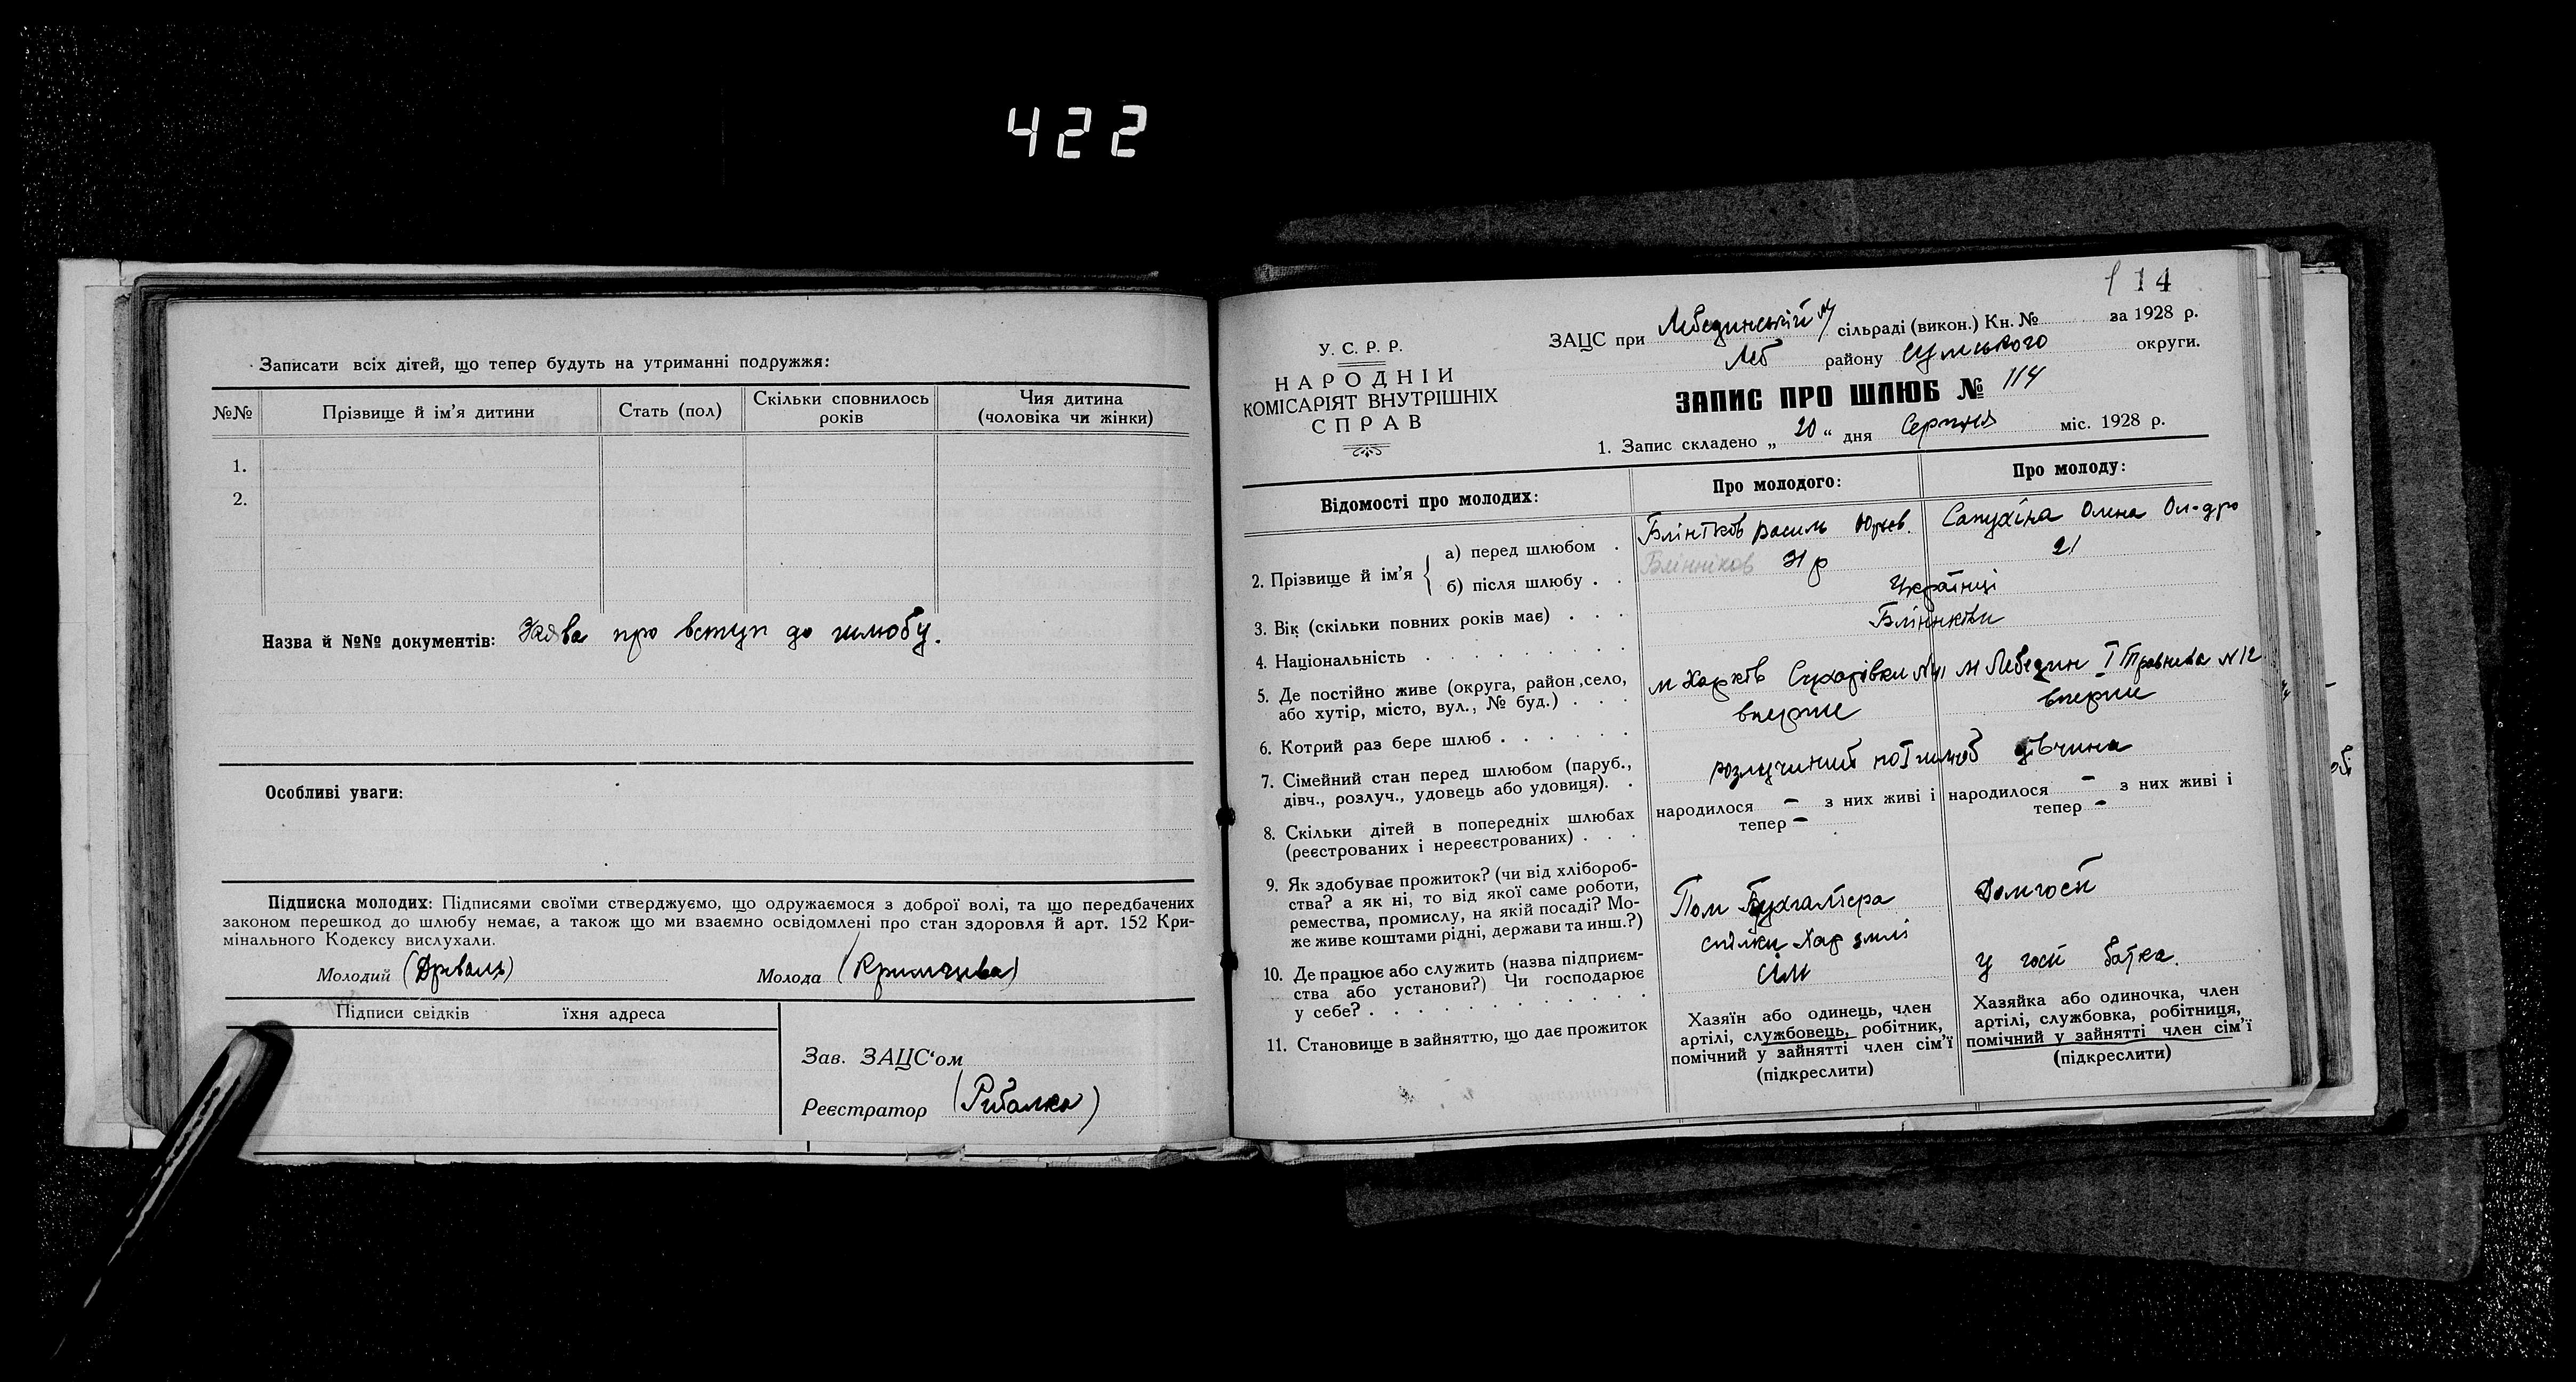 422
Записати всіх дітей, що тепер будуть на утриманні подружжя:
№№ Прізвище й ім'я дитини Стать (пол) Скільки сповнилось років Чия дитина (чоловіка чи жінки)
1.
2.
Назва й №№ документів: Заява про вступ до шлюбу.
Особливі уваги:
Підписка молодих: Підписями своїми стверджуємо, що одружаємося з доброї волі, та що передбачених
законом перешкод до шлюбу немає, а також що ми взаємно освідомлені про стан здоровля й арт. 152 Кри-
мінального Кодексу вислухали.
Молодий (Дриваль) Молода (Кримчіева)
Підписи свідків їхня адреса
Зав. ЗАЦС'ом
Реєстратор (Рибалка)
114
У. С. Р. Р.
НАРОДНІЙ
КОМІСАРІЯТ ВНУТРІШНІХ
СПРАВ
ЗАЦС при Лебединській м/ сільраді (викон.) Кн. № за 1928 р.
Леб району Сумського округи.
ЗАПИС ПРО ШЛЮБ № 114
1. Запис складено „ 20 “ дня Серпня міс. 1928 р.
Відомості про молодих: Про молодого: Про молоду:
2. Прізвище й ім'я { а) перед шлюбом . Василь Юрьев. Сапухіна Олена Ол-дро
б) після шлюбу . . Блінніков 31 р 21
3. Вік (скільки повних років має) . . . Українці
4. Національність
5. Де постійно живе (округа, район, село,
або хутір, місто, вул., № буд.) . . . м Харків м Лебедин І Травнева N 12
6. Котрий раз бере шлюб . . . . . . вперше вперше
7. Сімейний стан перед шлюбом (паруб.,
дівч., розлуч., удовець або удовиця). . по І шлюб дівчина
8. Скільки дітей в попередніх шлюбах
(реєстрованих і нереєстрованих) . . .
народилося – з них живі і
тепер –
народилося – з них живі і
тепер –
9. Як здобуває прожиток? (чи від хлібороб-
ства? а як ні, то від якої саме роботи,
ремества, промислу, на якій посаді? Мо-
же живе коштами рідні, держави та инш.?)
Пом Бухгалтера
Домгосп
10. Де працює або служить (назва підприєм-
ства або установи?) Чи господарює
у себе? . . . . . . . . . .
спілки Хар
у госп батка.
11. Становище в зайняттю, що дає прожиток
Хазяїн або одинець, член
артілі, службовець, робітник,
помічний у зайнятті член сім'ї
(підкреслити)
Хазяйка або одиночка, член
артілі, службовка, робітниця,
помічний у зайнятті член сім'ї
(підкреслити)